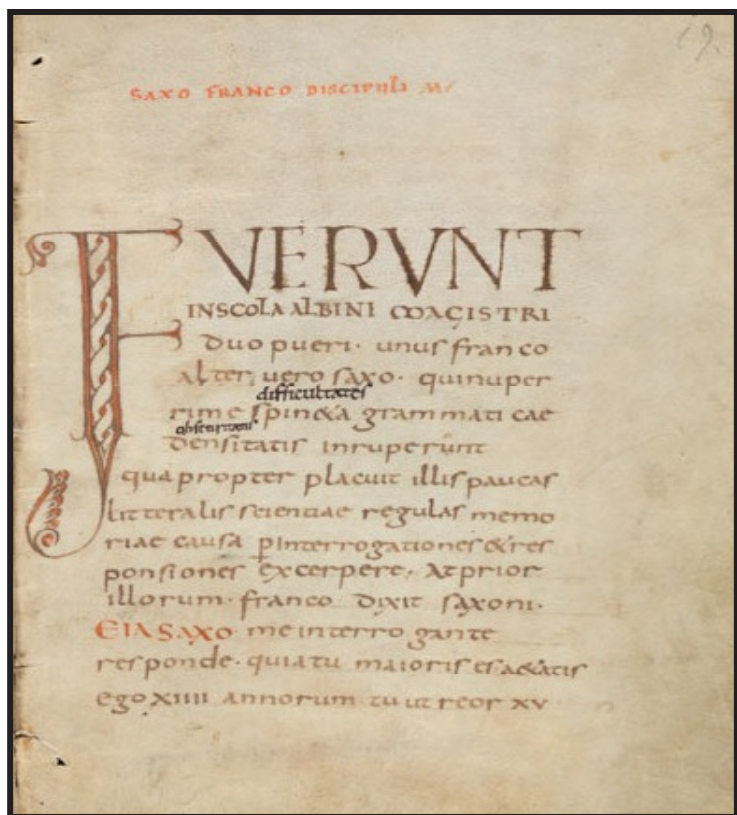 19.
SAXO FRANCO DISCIPULI
FUERUNT
IN SCOLA ALBINI MAGISTRI
duo pueri· unus franco
alter vero saxo· qui nuper
difficultates
rime spin&a grammaticae
densitatis inruperunt
quapropter placuit illis paucas
litteralis scientiae regulas memo
riae causa p̲interrogationes &res
ponsiones excerpere· At prior
illorum· franco dixit saxoni·
EIA SAXO me interrogante
responde· quia tu maioris es a&atis
ego XIIII annorum· tu ut reor XV